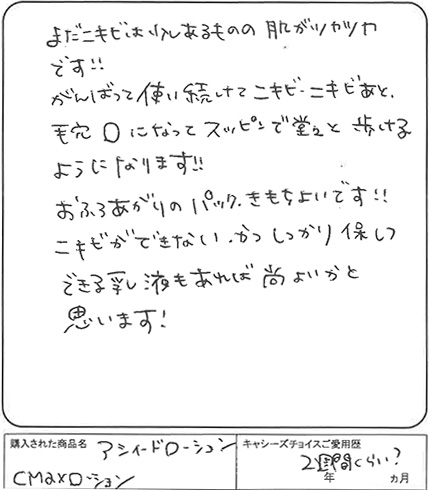 まだニキビは少しあるものの 肌がツヤツヤ
です!!
がんばって使い続けて ニキビ・ニキビあと、
毛穴 0 になって スッピンで堂々と 歩ける
ようになります!!
おふろあがりの パック、きもちよいです!!
ニキビができない、かつ しっかり 保しつ
できる乳液もあれば 尚よいかと
思います!
購入された商品名 アシィードローション
CMaxローション
キャシーズチョイスご愛用歴
2週間くらい?
年 カ月